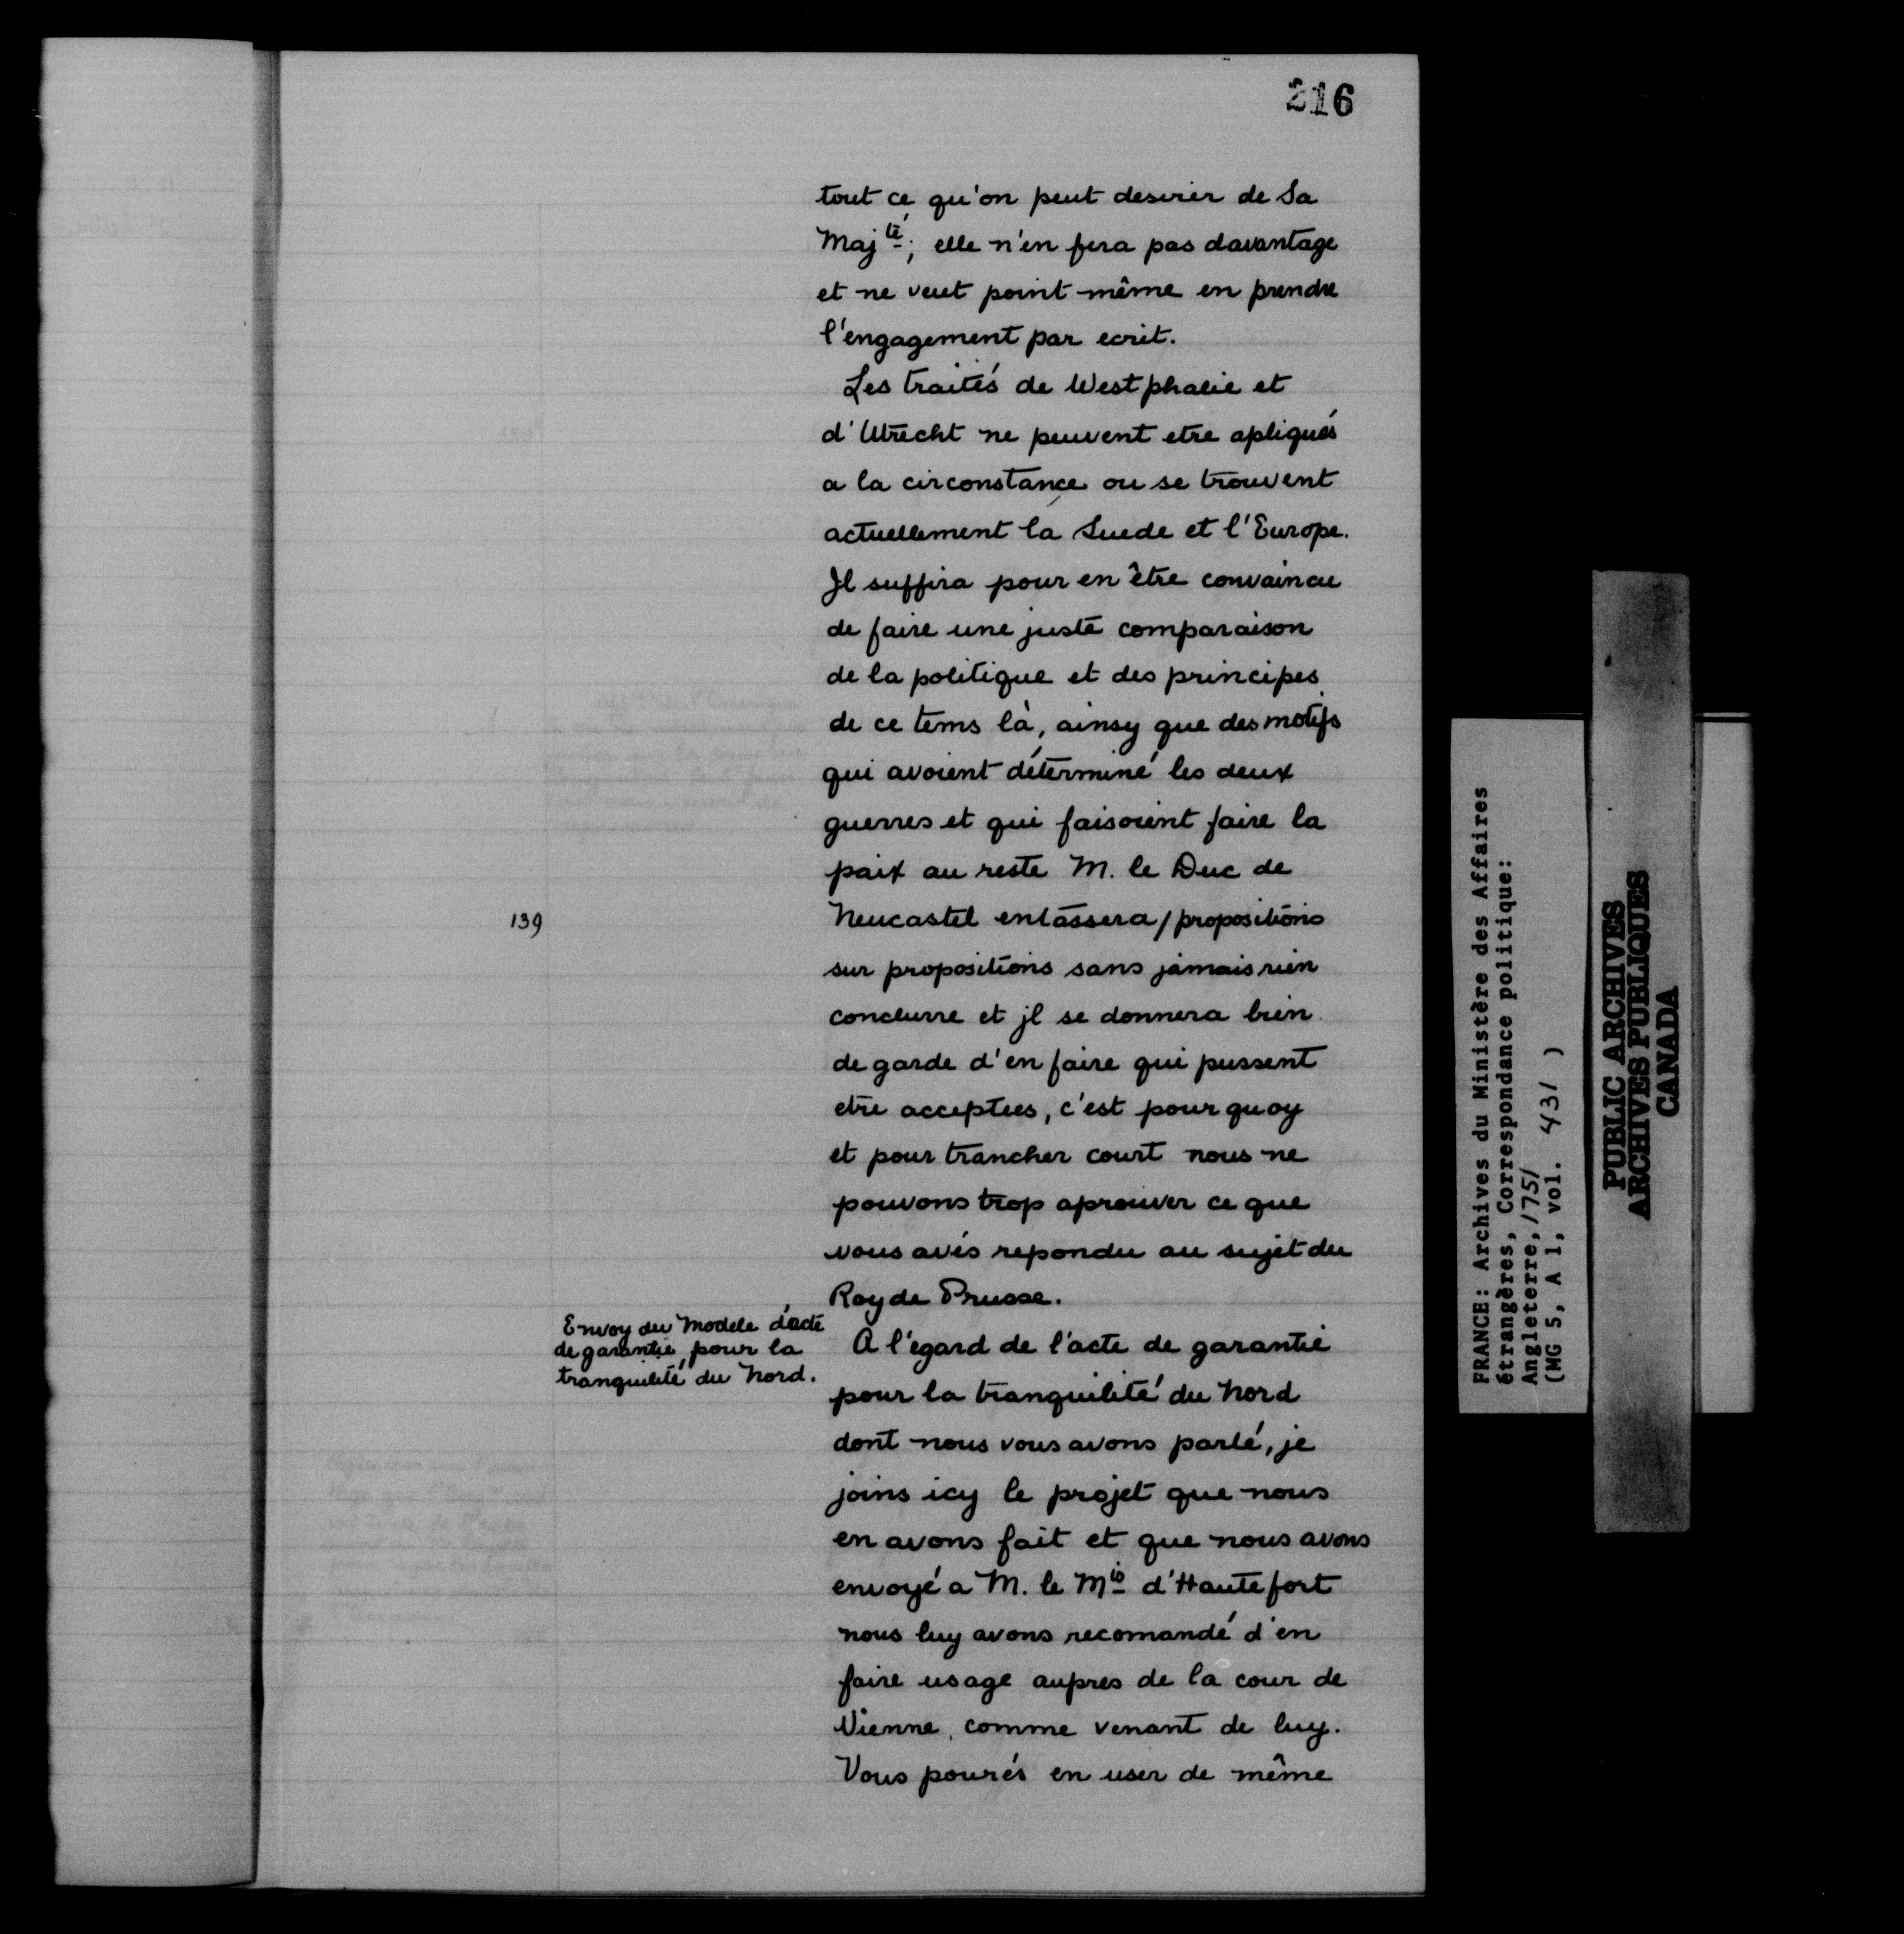 216
tout ce qu'on peut desirer de Sa
Maj té; elle n'en fera pas davantage
et ne veut point même en prendre
l'engagement par ecrit.
Les traités de Westphalie et
d'Utrecht ne peuvent etre apliqués
a la circonstance ou se trouvent
actuellement la Suede et l'Europe.
Jl suffira pour en être convaincu
de faire une juste comparaison
de la politique et des principes
de ce tems là, ainsy que des motifs
qui avoient déterminé les deux
guerres et qui faisoient faire la
paix au reste M. le Duc de
139
Neucastel entassera / propositions
sur propositions sans jamais rien
conclurre et jl se donnera bien
de garde d'en faire qui pussent
etre acceptees, c'est pour quoy
et pour trancher court nous ne
pouvons trop aprouver ce que
vous avés repondu au sujet du
Roy de Prusse.
Envoy du Modele d'acte
de garantie, pour la
tranquilité du Nord.
A l'égard de l'acte de garantie
pour la tranquilité du Nord
dont nous vous avons parlé, je
joins icy le projet que nous
en avons fait et que nous avons
envoyé a M. le Mis d'Hautefort
nous luy avons recomandé d'en
faire usage aupres de la cour de
Vienne, comme venant de luy.
Vous pourés en user de même
FRANCE: Archives du Ministère des Affaires
étrangères, Correspondance politique:
Angleterre, 1751
(MG 5, A 1, vol. 431 )
PUBLIC ARCHIVES
ARCHIVES PUBLIQUES
CANADA